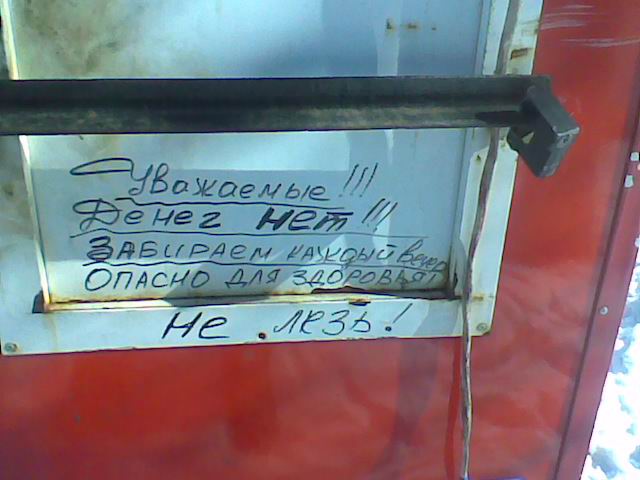 Уважаемые!!!
Денег нет!!!
ЗАБИРАЕМ КАЖДЫЙ Вечер
ОПАСНО ДЛЯ ЗДОРОВЬЯ!
Не ЛЕЗЬ!